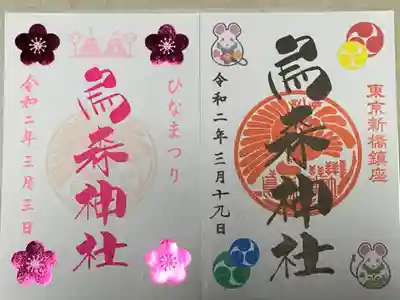 ひなまつり
烏森神社
令和二年三月三日
東京新橋鎮座
烏森神社
令和二年三月十九日